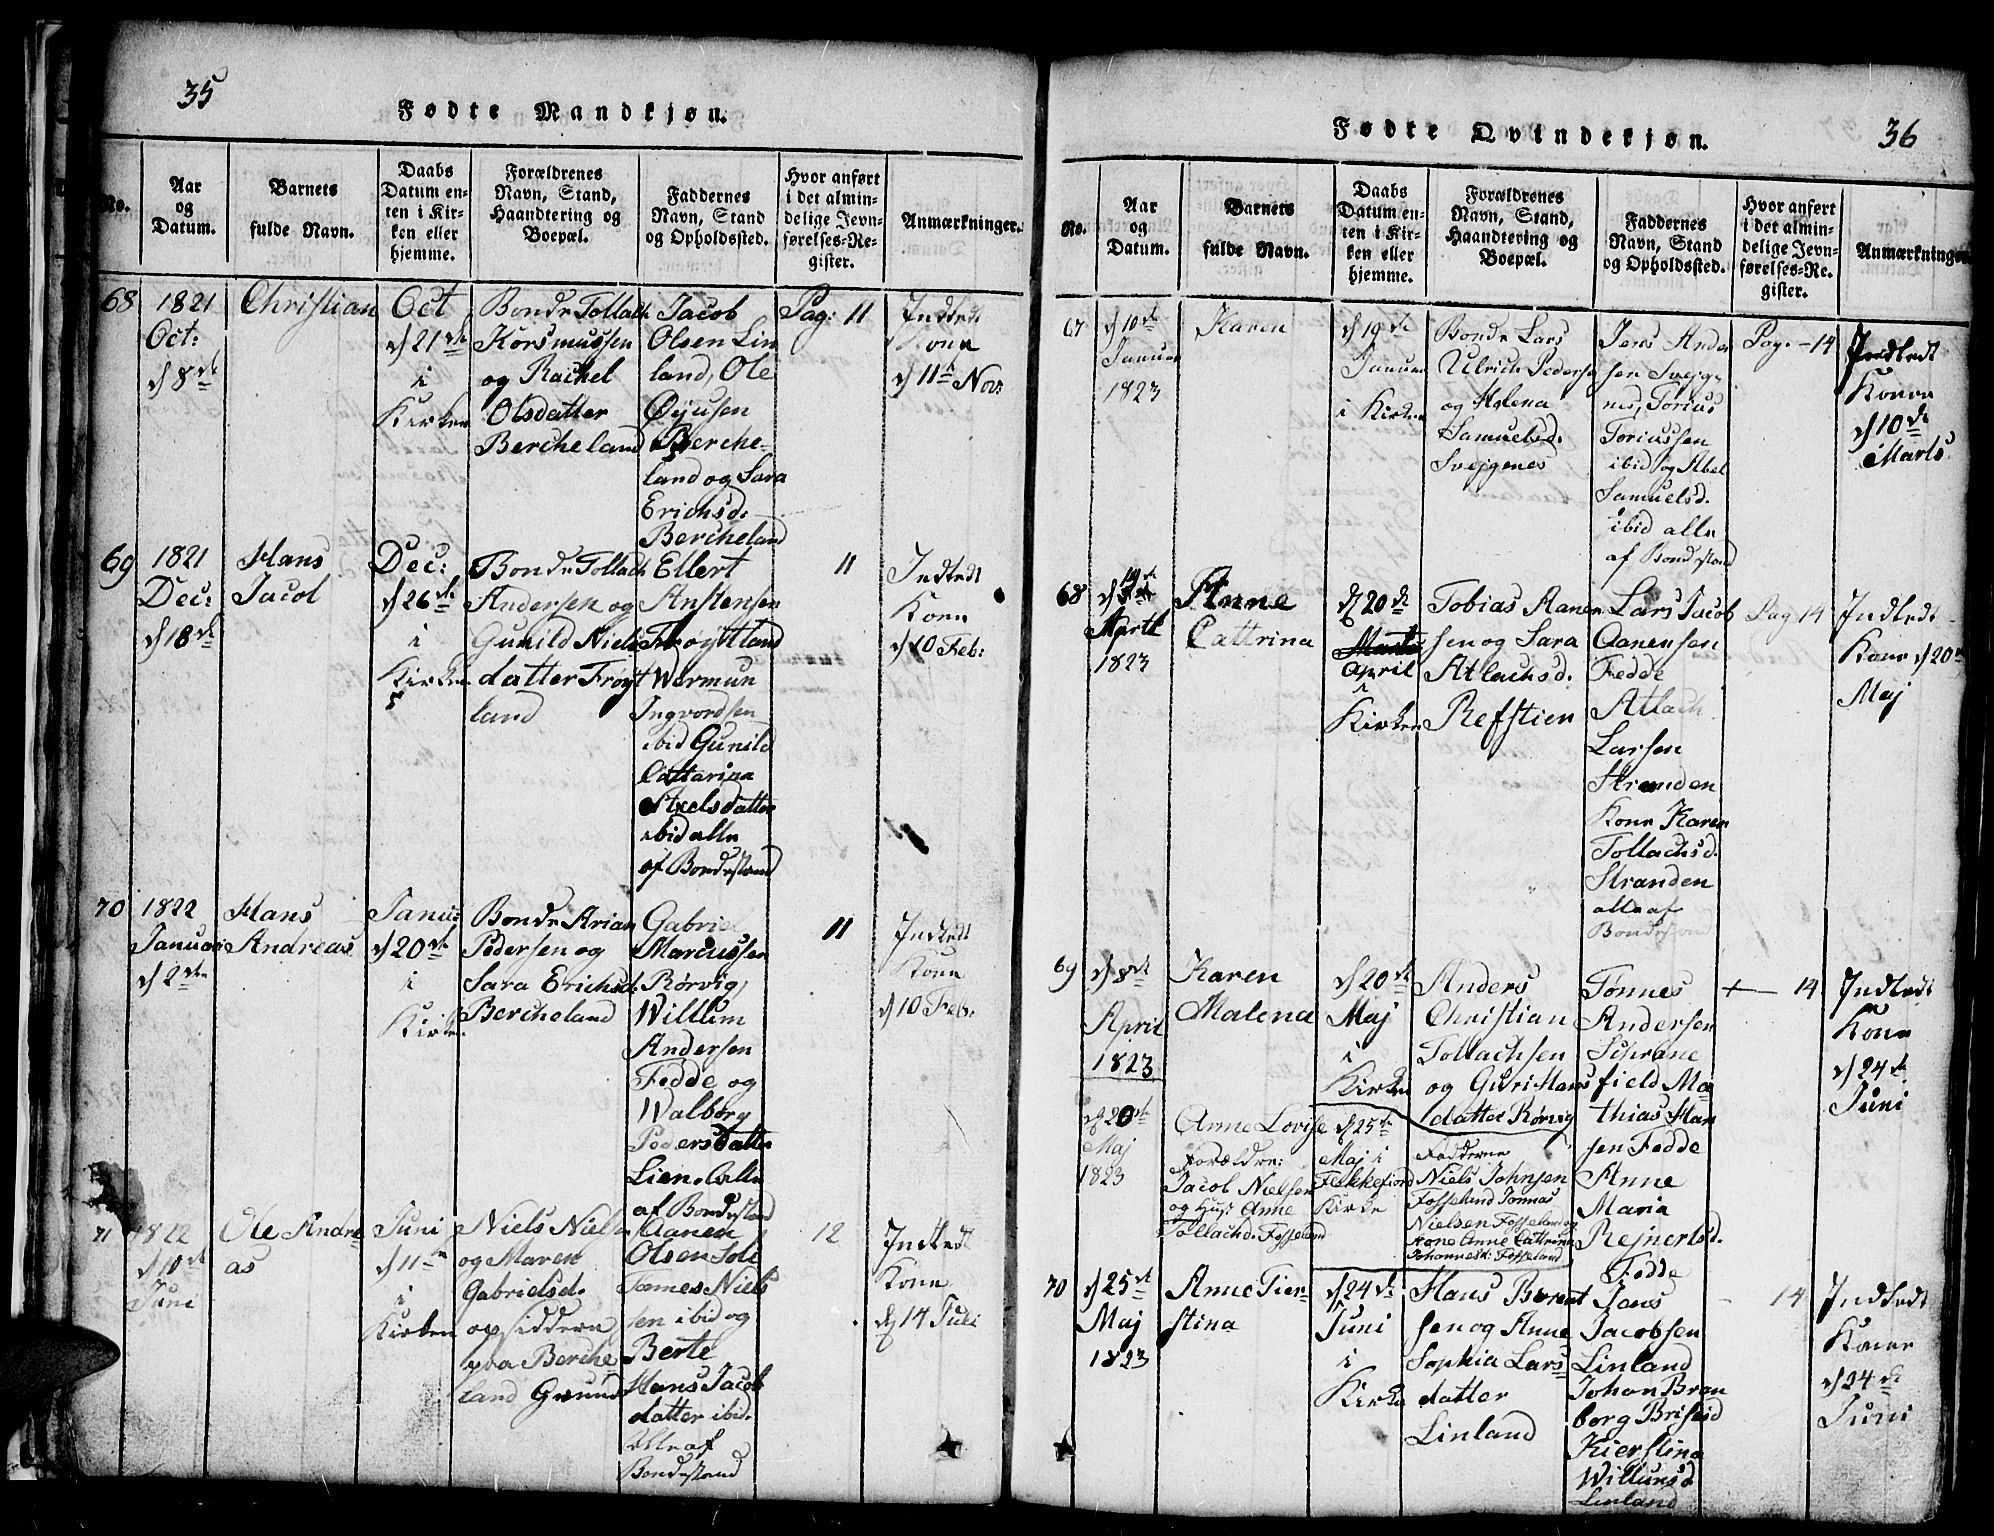 35
Fødte Mandkjøn.
No.
Aar
og
Datum.
Barnets
fulde Navn.
Daabs
Datum en-
ten i Kir-
ken eller
hjemme.
Forældrenes
Navn, Stand,
Haandtering og
Boepæl.
Faddernes
Navn, Stand
og Opholdssted.
Hvor anført
i det almin-
delige Jevn-
førelses-Re-
gister.
Anmærkninger.
68
1821
Oct:
d 8de
Christian
Oct
d 21de
i
Kirken
Bonde Tollach
Korsmussen
og Rachel
Olsdatter
Bercheland
Jacob
Olsen Lin
land, Ole
Øyusen
Berche-
land og Sara
Erichsd:
Bercheland
Pag: 11
Indledt
Kone
d 11te Nov:
69
1821
Dec:
d 18de
Hans
Jacob
Dec:
d 26de
i
Kirken
Bonde Tollach
Andersen og
Gunild Niels
datter Frøyt
land
Ellert
Anstensen
Frøytland
Wermun
Ingvordsen
ibid Gunild
Cattarina
Axelsdatter
ibid alle
af Bondestand
11
Indledt
Kone
d 10 Feb:
70
1822
Januari
d 2den
Hans
Andreas
Janu:
d 20de
i
Kirken
Bonde Arian
Pedersen og
Sara Erichsd:
Bercheland
Gabriel
Marcussen
Rørvig,
Willum
Andersen
Fedde og
Walborg
Pedersdatter
Lien. alle
af Bondestand
11
Indledt
Kone
d 10 Feb:
71
1822
d 10de
Juni
Ole Andre
as
Juni
d 11te
i
Kirken
Niels Nielsen
og Maren
Gabrielsd.
opsiddere
paa Berche
land Grund
Aanen
Olsen
Tames Niels
sen ibid og
Berte
Hans Jacob
datter ibid.
Alle af
Bondestand
12
Indledt
Kone
d 14 Juli
36
Fødte Qvindekjøn.
No.
Aar
og
Datum.
Barnets
fulde Navn.
Daabs
Datum en-
ten i Kir-
ken eller
hjemme.
Forældrenes
Navn, Stand,
Haandtering og
Boepæl.
Faddernes
Navn, Stand
og Opholdssted.
Hvor anført
i det almin-
delige Jevn-
førelses-Re-
gister.
Anmærkninger
67
d 10de
Januar
1823
Karen
d 19de
Januar
i Kirken
Bonde Lars
Ulrich Pedersen
og Helena
Samuelsd.
Svejgenes
Jens Ander
sen Svejge
nes, Torius
Toriussen
ibid og Abel
Samuelsd.
ibid alle
af Bondestand
Pag. - 14
Indledt
Konen
d 10de
Marts
68
d 14de
April
1823
Anne
Cattrina
d 20de
April
i
Kirken
Tobias Aanen
sen og Sara
Atlachsd.
Refstien
Lars Jacob
Aanensen
Fedde
Atlach
Larsen
Stranden
Kone Karen
Tollachsd.
Stranden
alle af
Bondestand
Pag 14
Indledt
Kone d 20de
Maj
69
d 8de
April
1823
Karen
Malena
d 20de
Maj
i
Kirken
Anders
Christian
Tollachsen
og Guri Hans
datter Rørvig
Tønnes
Andersen
Schrane
field Ma
thias Han
sen Fedde
Anne
Maria
Rejnertsd.
Fedde
14
Indledt
Kone
d 24de
Juni
d 20de
Maj
1823
Anne Lovise
Forældre:
Jacob Nielsen
og Hust Anne
Tollachd. Fosseland
d 25de
Maj i
Fekkefiord
Kirke
Fadderne
Niels Johnsen
Fosseland Tønnas
Nielsen Fosseland og
Kone Anne Cattrina
Johannesd: Fosseland
70
d 25de
Maj
1823
Anne Tier-
stina
d 24de
Juni
i
Kirke
Hans Berent
sen og Anne
Sophia Lars
datter
Linland
Jens
Jacobsen
Linland
Johan Bran
borg Brisesd
Kierstina
Willumsd
Linland
14
Indledt
Kone
d 24de
Juni